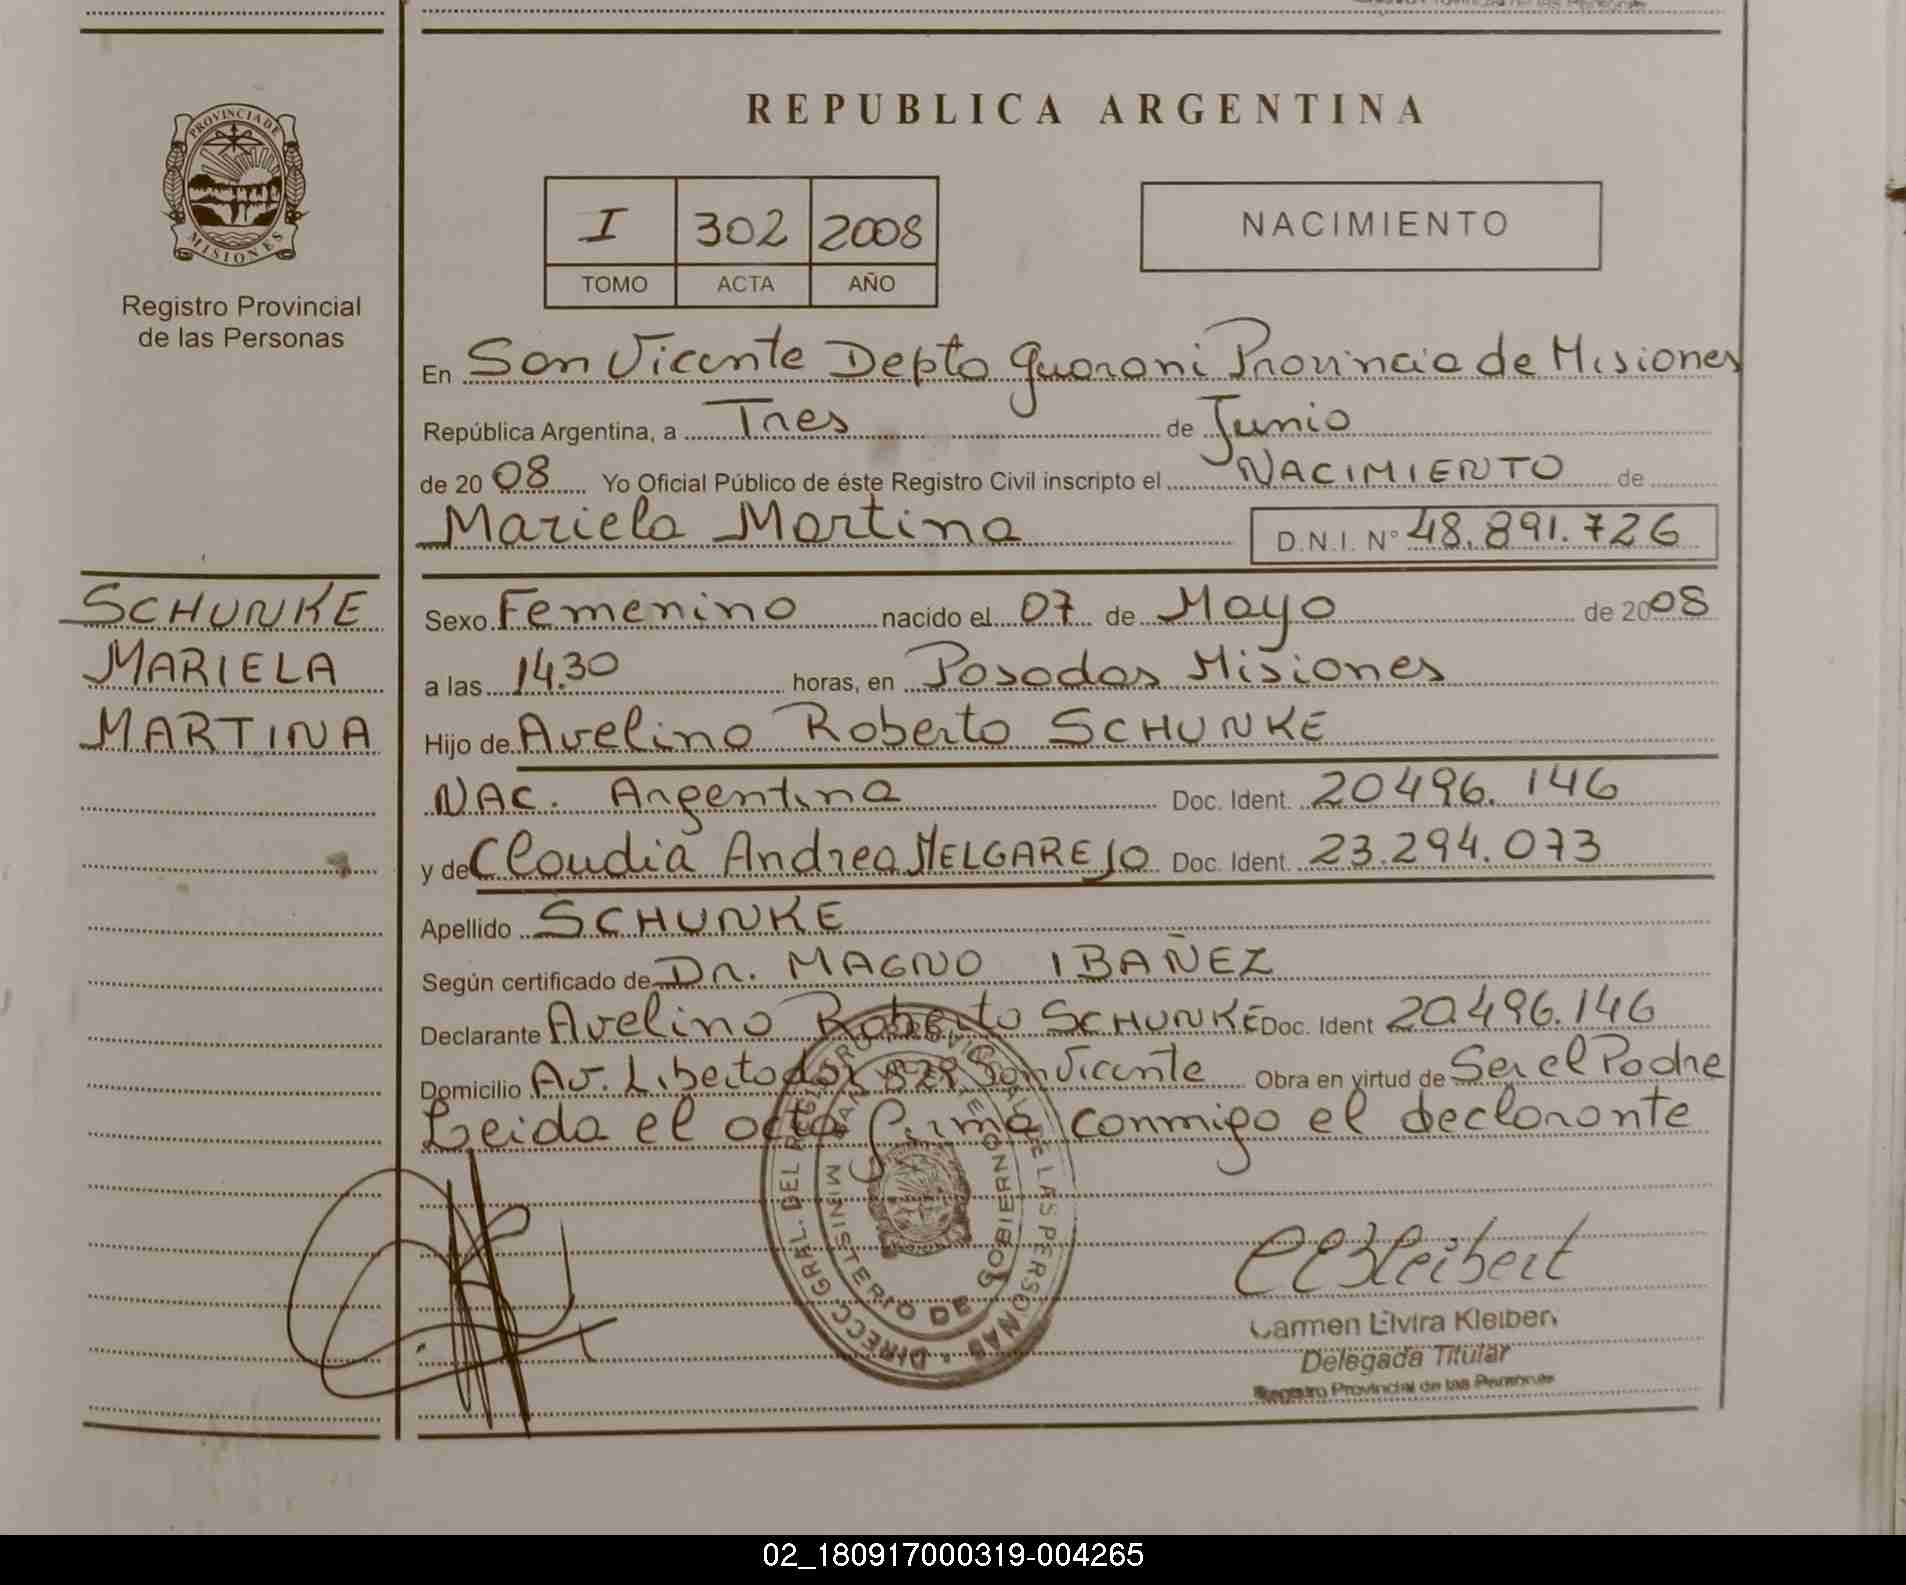 REPUBLICA ARGENTINA
PROVINCIA DE
MISIONES
Registro Provincial
de las Personas
I 302 2008
TOMO ACTA AÑO
NACIMIENTO
En San Vicente Depto Guarani Provincia de Misiones
República Argentina, a Tres de Junio
de 2008 Yo Oficial Público de éste Registro Civil inscripto el NACIMIENTO de
Mariela Martina D.N.I. Nº 48.891.726
SCHUNKE
MARIELA
MARTINA
Sexo Femenino nacido el 07 de Mayo de 2008
a las 14.30 horas, en Posadas Misiones
Hijo de Avelino Roberto SCHUNKE
NAC. Argentina Doc. Ident. 20496.146
y de Claudia Andrea MELGAREJO Doc. Ident. 23.294.073
Apellido SCHUNKE
Según certificado de Dr. MAGNO IBAÑEZ
Declarante Avelino Roberto SCHUNKE Doc. Ident 20.496.146
Domicilio Av. Libertador San Vicente Obra en virtud de Ser el Padre
Leida el acta firma conmigo el declarante
DIRECC. GRAL. DEL REGISTRO PROVINCIAL DE LAS PERSONAS
MINISTERIO DE GOBIERNO
Carmen Elvira Kleibert
Delegada Titular
Registro Provincial de las Personas
02_180917000319-004265